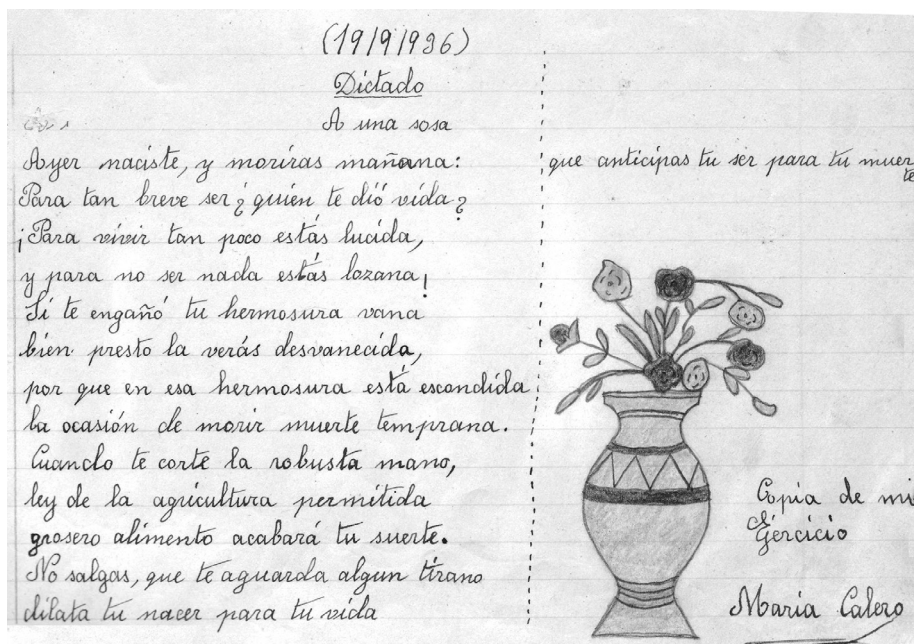 (19/9/1936)
Dictado
A una rosa
Ayer naciste, y moriras mañana:
Para tan breve ser ¿quién te dió vida?
¡Para vivir tan poco estás lucida,
y para no ser nada estás lozana!
Si te engañó tu hermosura vana
bien presto la verás desvanecida,
por que en esa hermosura está escondida
la ocasión de morir muerte temprana.
Cuando te corte la robusta mano,
ley de la agricultura permitida
grosero alimento acabará tu suerte.
No salgas, que te aguarda algun tirano
dilata tu nacer para tu vida
que anticipas tu ser para tu muer
te
Copia de mi
Ejercicio
María Calero